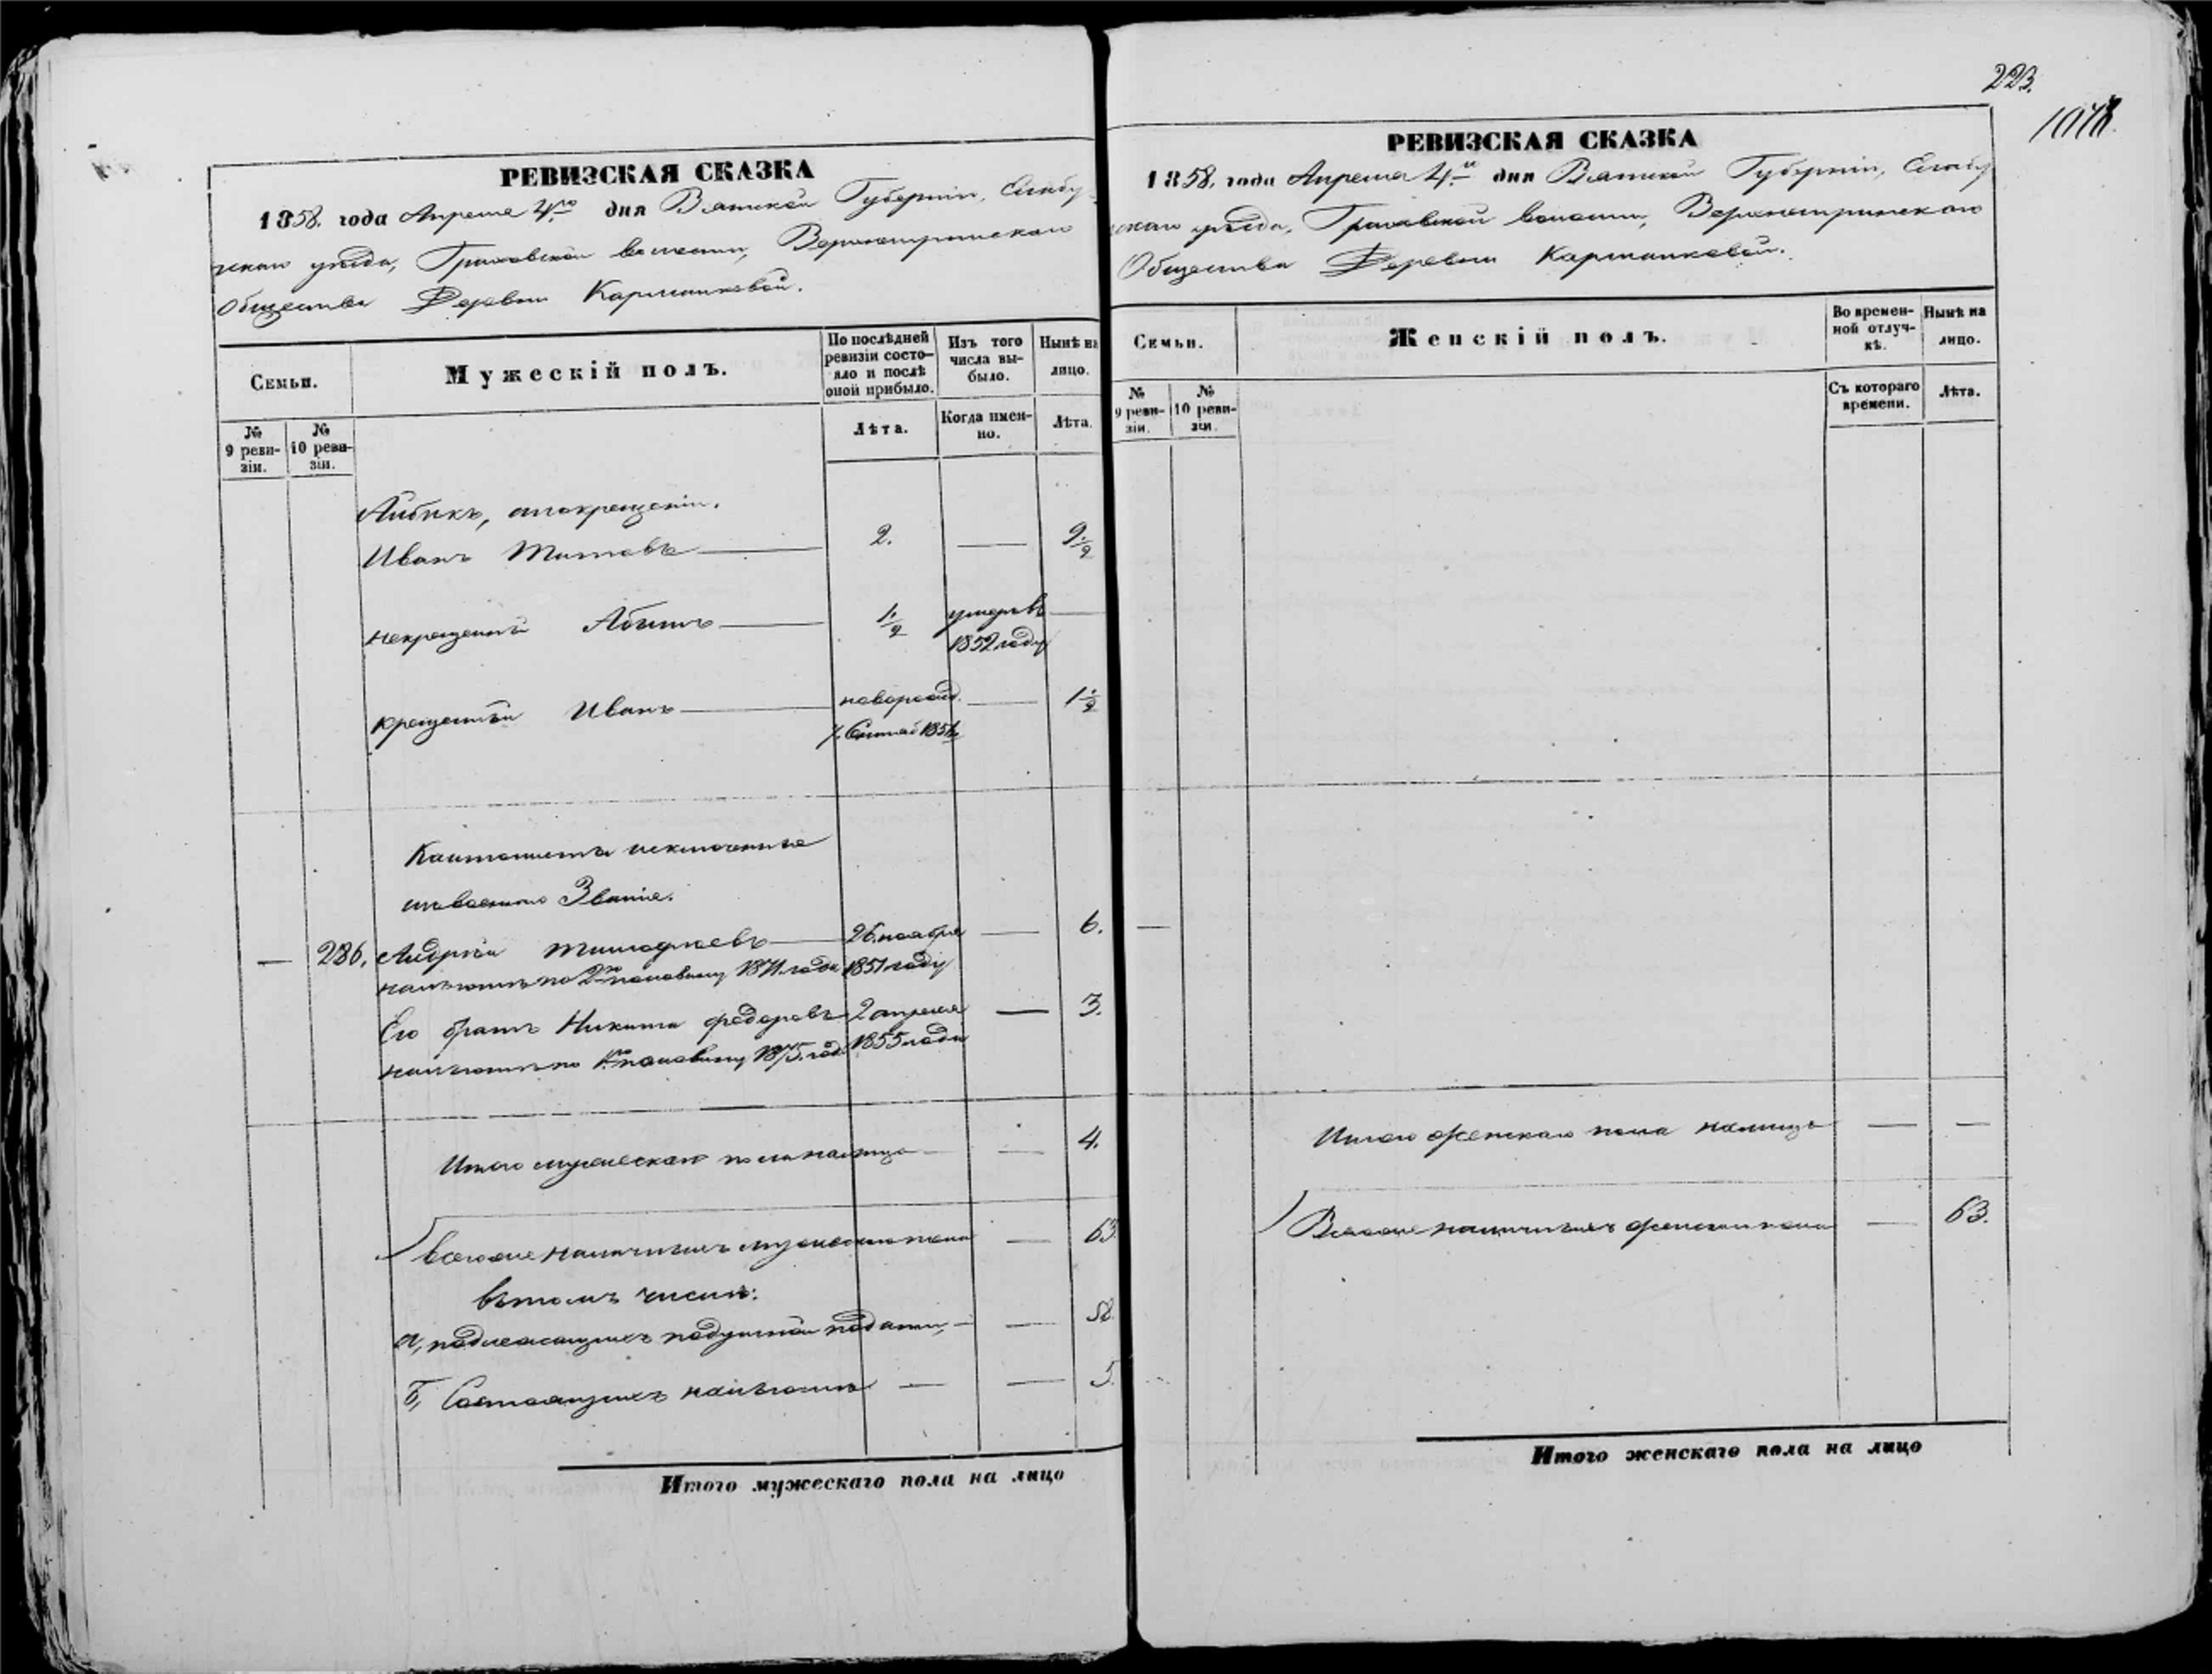 223.
1078.
РЕВИЗСКАЯ СКАЗКА
1858. года Апреля 4го дня Вятской Губернии, Елабу-
жскаго уѣзда, Граховской волости,
Общества Деревни Карманковой.
Семьи.
Мужескій полъ.
По послѣдней ревизіи состояло и послѣ оной прибыло.
Изъ того числа выбыло.
Нынѣ на лицо.
№ 9 ревизіи.
№ 10 ревизіи.
Лѣта.
Когда именно.
Лѣта.
Иванъ Титовъ 2. — 9 1/2
некрещеный 1/2 умеръ въ —
1852 году
крещеный Иванъ новорожд. — 1 1/2
Кантонисты исключенные
изъ военнаго Званія.
— 286. Андрей Тимофеевъ 26 ноября — 6.
на льготѣ по 2ю половину 1871 года 1851 году
Его братъ Никита Федоровъ 2 апреля — 3.
на льготѣ по 1ю половину 1875 год. 1855 года
Итого мужескаго пола налицо — 4.
Всего же наличныхъ мужескаго пола — 63.
въ томъ числѣ:
а, подлежащихъ подушной подати, — 58.
б, Состоящихъ на льготѣ — — 5.
Итого мужескаго пола на лицо
РЕВИЗСКАЯ СКАЗКА
1858. года Апреля 4го дня Вятской Губерніи, Елабу
жскаго уѣзда, Граховской волости,
Общества Деревни Карманковой.
Семьи.
Женскій полъ.
Во временной отлучкѣ.
Нынѣ на лицо.
№ 9 ревизіи.
№ 10 ревизіи.
Съ котораго времени.
Лѣта.
—
Итого женскаго пола налицо — —
Всего же наличныхъ женскаго пола — 63.
Итого женскаго пола на лицо